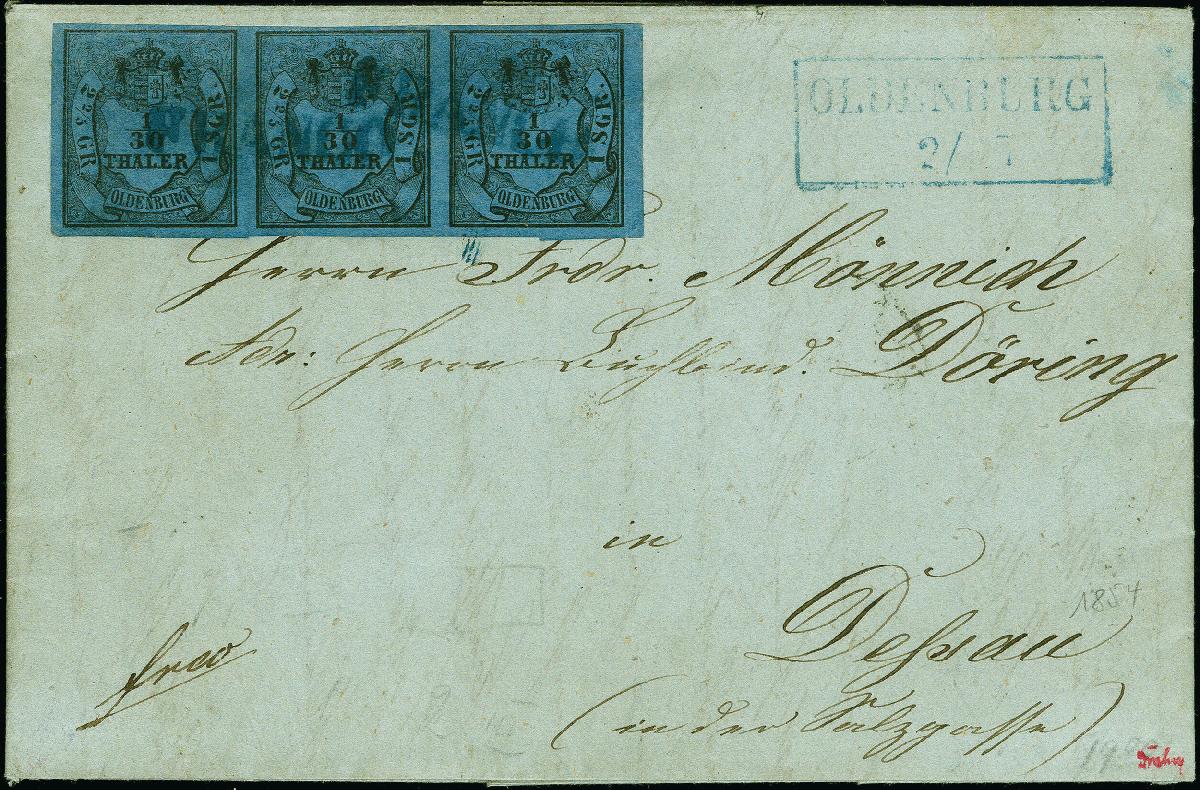 2 2/5 GR. 1/30 THALER 1 SGR. OLDENBURG
2 2/5 GR. 1/30 THALER 1 SGR. OLDENBURG
2 2/5 GR. 1/30 THALER 1 SGR. OLDENBURG
OLDENBURG
2/ 7
Herrn Frdr. Mönnich
Adr: Herrn Buchbind. Döring
in
Deßau
1854
(in der Salzgasse)
frco